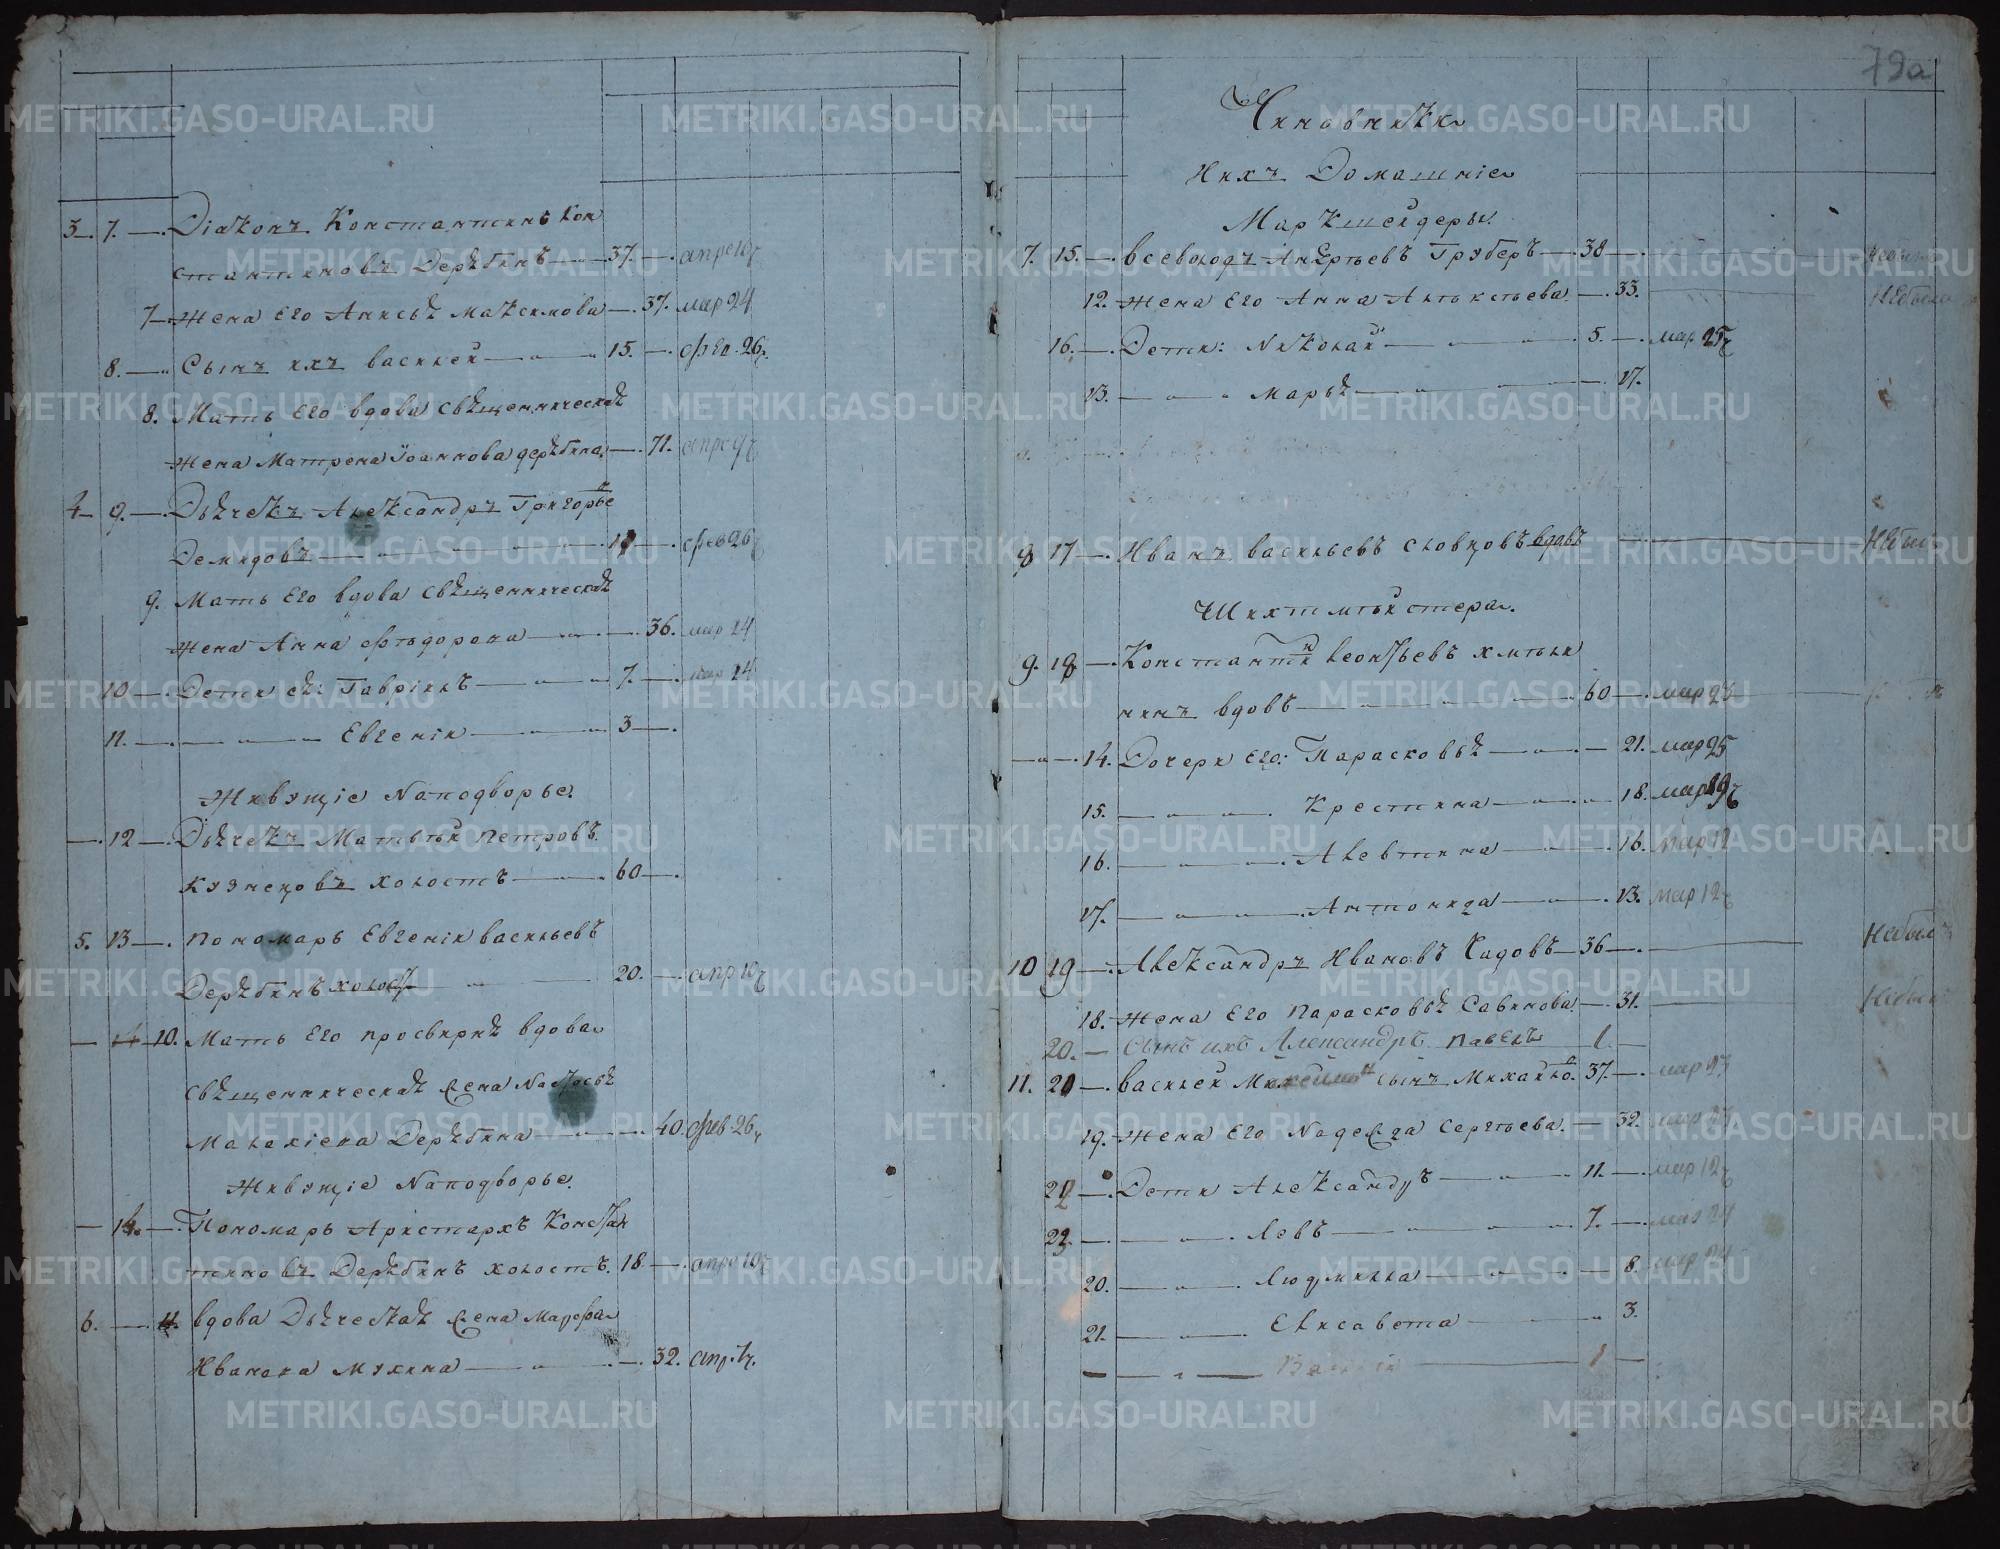 3. 7. Діаконъ Константинъ Кон
стантиновъ Дерябинъ 37. апре 10
7 Жена Его Анисья Максимова 37. мар 24
8. Сынъ ихъ Василей 15. фев. 26
8. Мать Его вдова Священническая
Жена Матрена Іоаннова Дерябина 71. апре
4 9. Дьячекъ Александръ Григорьев
Демидовъ фев 26
9. Мать Его вдова Священническая
Жена Анна Фѣдорова 36. мар 24
10 Дети ея: Гавріилъ 7. мар 24
11. Евгеніи 3
Живущіе Наподворье.
12 Дьячекъ Матвѣй Петровъ
Кузнецовъ холостъ 60
5. 13 Пономарь Евгеніи Васильевъ
Дерябинъ холостъ 20. апр 10
10. Мать Его просвирня вдова
Священническая Жена Настасья
Малахіева Дерябина 40. фев. 26
Живущіе Наподворье.
14 Пономарь Аристархъ Констан
тиновъ Дерябинъ холостъ. 18 апре 10
6. 11. Вдова Дьячекая Жена Марфа
Иванова Мухина 32. апр.
79а
Чиновники
Ихъ Домашніе
Маркшейдеры.
7. 15. Всеволодъ Андреевъ Груберъ 38
12. Жена Его Анна Алексѣева 33. Небыла
16. Дети: Николай 5. мар 25
13. Марья 17.
8 17 Иванъ Васильевъ Словцовъ вдовъ Небылъ
Шихтмѣйстера.
9. 18 Константин Леонтьевъ Хмѣли
нинъ вдовъ 60 мар 23
14. Дочери Его: Парасковья 21. мар 25
15. Крестина 18. мар 19
16. Алевтина 16. мар 12
17. Антонида 13. мар 12
10 19 Александръ Ивановъ Садовъ 36 Небылъ
18. Жена Его Парасковья Савинова 31. Небыла
20. Сынъ ихъ Александръ Павелъ 1
11. 20 Василей сынъ Михайло. 37. мар 23
19. Жена Его Надежда Сергѣева. 32. мар 23
22 Дети Александръ 11. мар 12
23. Левъ 7. мар 24
20. Людмила 8. мар 24
21. Елисавета 3.
1
METRIKI.GASO-URAL.RU